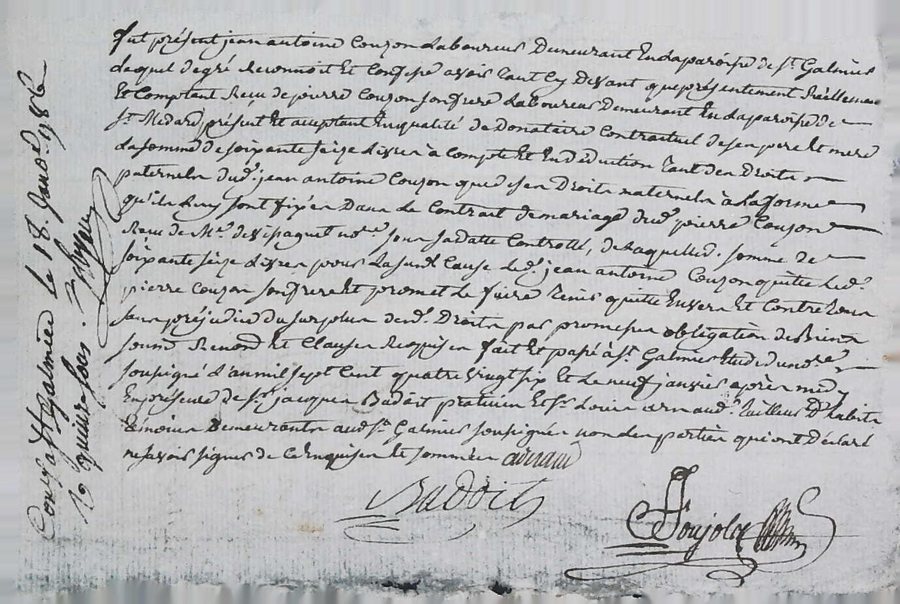 fut présent jean antoine Couzon Laboureur Demeurant En La paroisse de st. Galmier
Lequel de gré Reconnoit Et Confesse avoir tant Cy Devant que présentement Réellement
Et Comptant Reçu de pierre Couzon son frere Laboureur Demeurant En La paroisse de
st. Medard présent Et aceptant En qualité de Donataire Contractuel de ses pere Et mere
La somme de soixante seize Livres à Compte Et En Déduction tant des Droits
paternels dud. jean antoine Couzon que de ses Droits maternels à La forme
qu'ils Luy sont fixés Dans Le Contrat de mariage dud. pierre Couzon
Reçu de Me. notre. sous sa datte Controllé, de Laquelle d. somme de
soixante seize Livres pour La susd. Cause Led. jean antoine Couzon quitte Led.
pierre Couzon son frere Et promet Le faire tenir quitte Envers Et Contre tous
sans préjudice du surplus desd. Droits par promesse obligation de Biens
soumd. Renond. Et Clauses Requises fait Et passé à st. Galmier Etude du nore.
soussigné L'an mil sept Cent quatre vingt six Et Le neuf janvier après midy
En présence de sr. jacques Badoit praticien Et sr. Louis arnaud tailleur d'habits
témoins Demeurants aud. st. Galmier soussignés non Les parties qui ont déclaré
ne savoir signer de Ce Enquises Et sommées arnaud
Badoit
Poujolas
Con. à st. Galmier Le 18. janv. 1786
Rs. quinze sols.